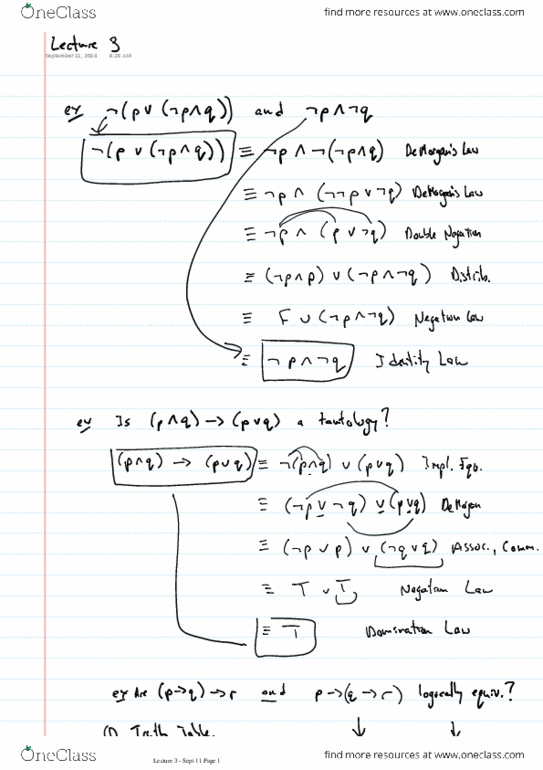 OneClass find more resources at www.oneclass.com
Lecture 3
September 11, 2014 8:28 AM
ex ¬(p ∨ (¬p ∧ q)) and ¬p ∧ ¬q
¬(p ∨ (¬p ∧ q)) ≡ ¬p ∧ ¬(¬p ∧ q) DeMorgan's Law
≡ ¬p ∧ (¬¬p ∨ ¬q) DeMorgan's Law
≡ ¬p ∧ (p ∨ ¬q) Double Negation
≡ (¬p ∧ p) ∨ (¬p ∧ ¬q) Distrib.
≡ F ∨ (¬p ∧ ¬q) Negation Law
≡ ¬p ∧ ¬q Identity Law
ex Is (p ∧ q) → (p ∨ q) a tautology?
(p ∧ q) → (p ∨ q) ≡ ¬(p ∧ q) ∨ (p ∨ q) Impl. Equ.
≡ (¬p ∨ ¬q) ∨ (p ∨ q) DeMorgan
≡ (¬p ∨ p) ∨ (¬q ∨ q) Assoc., Comm.
≡ T ∨ T Negation Law
≡ T Domination Law
ex Are (p → q) → r and p → (q → r) logically equiv.?
(1) Truth Table.
OneClass Lecture 3 - Sept 11 Page 1 find more resources at www.oneclass.com